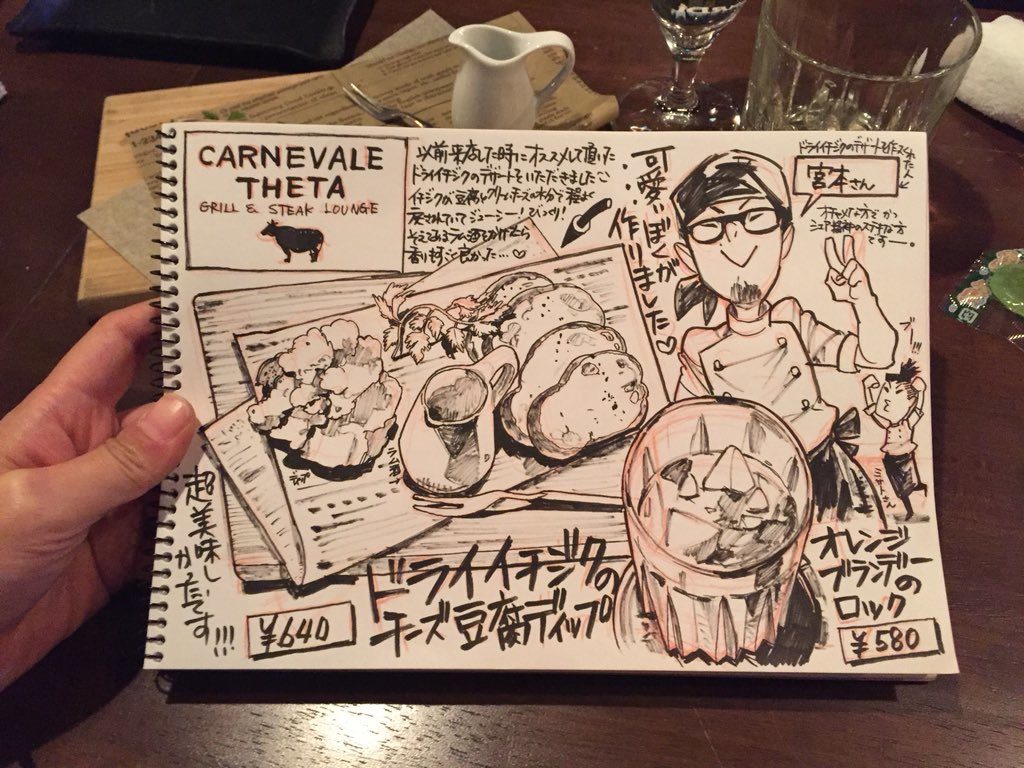 CARNEVALE
THETA
GRILL & STEAK LOUNGE
以前来店した時にオススメして頂いた
ドライイチジクのデザートをいただきました
イチジクが豆腐とクリームチーズの水分で程よく
戻されていてジューシー!びっくり!
そえてあるラム酒をかけたら
香りもすごく良かった…♡
可愛いぼくが
作りました♡
ドライイチジクのデザートを作ってくれた人
宮本さん
オチャメな方でかつ
シェア精神のステキな方
ですー。
ラム酒
ディップ
超美味し
かったです!!!
¥640
ドライイチジクの
チーズ豆腐ディップ
オレンジ
ブランデーの
ロック
¥580